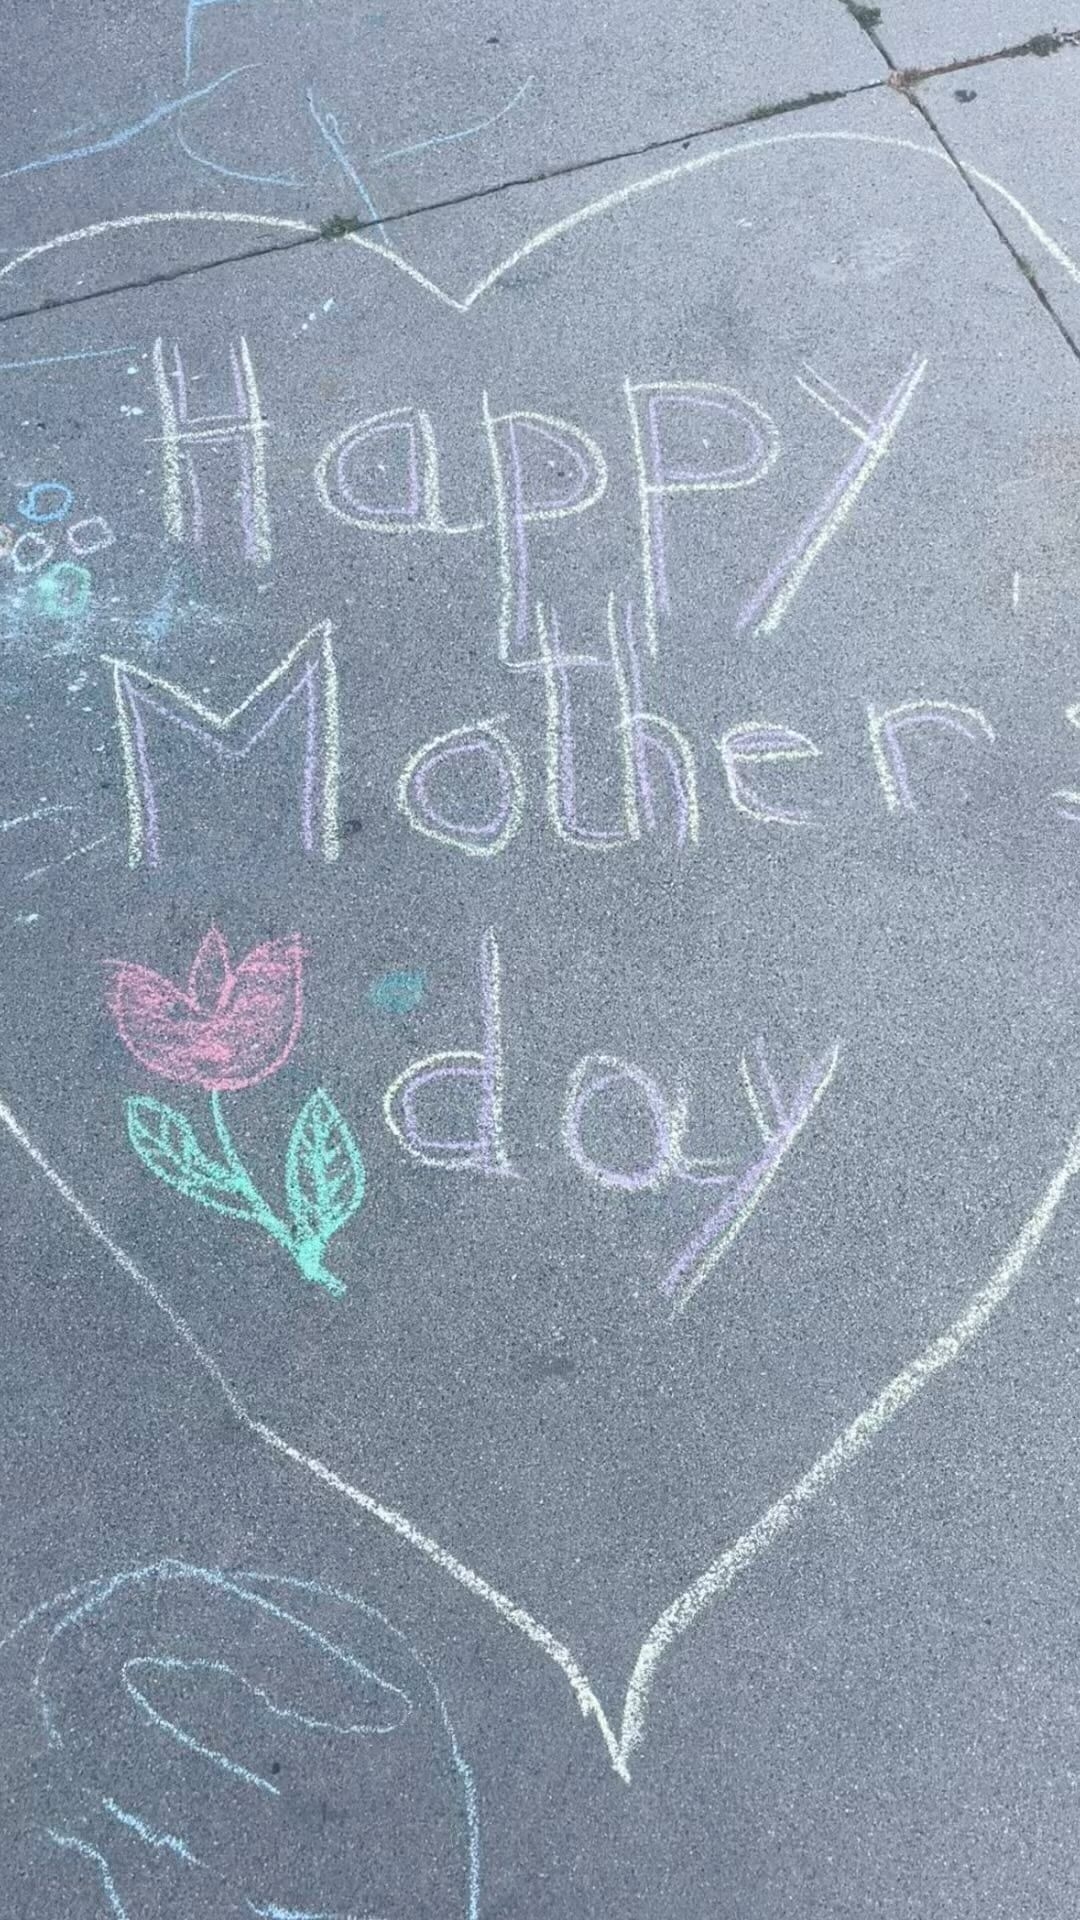 Happy
Mothers
day